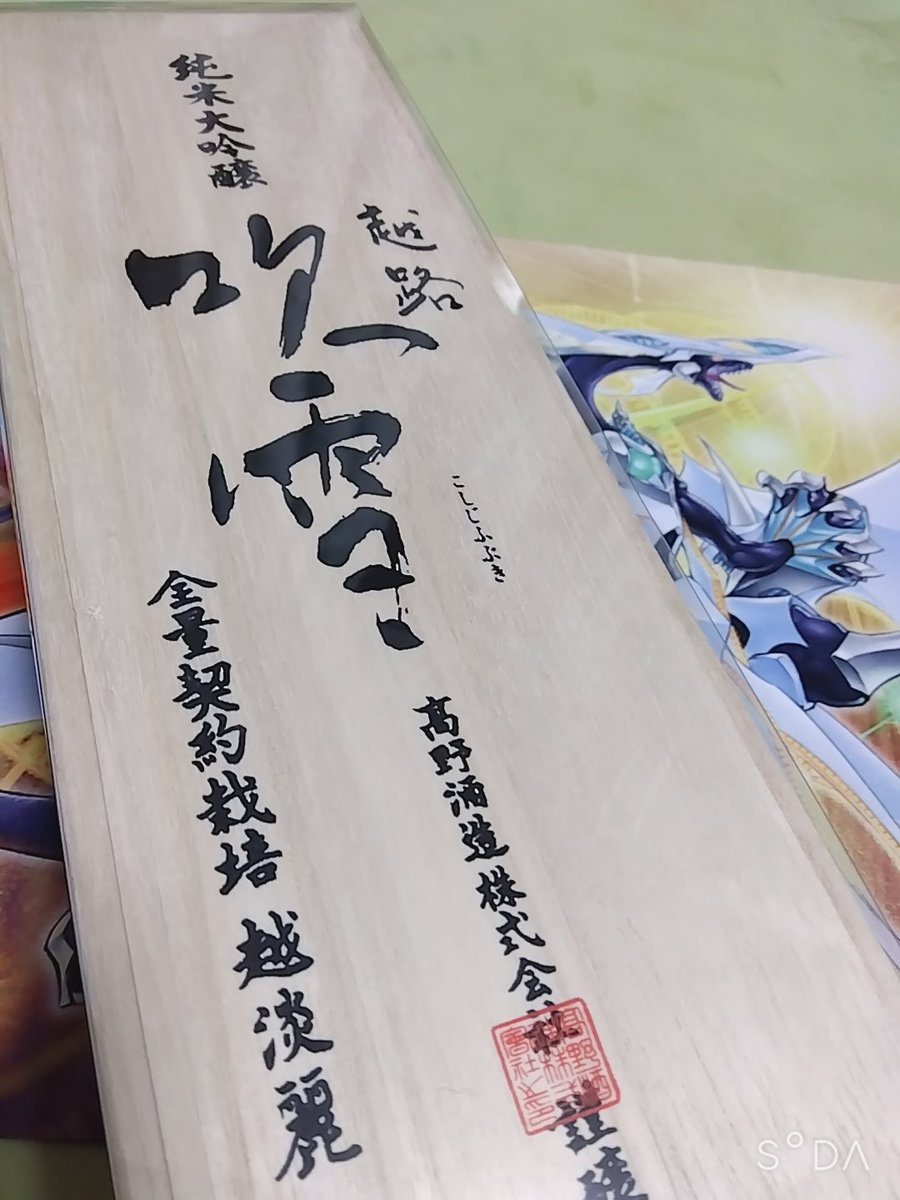 純米大吟醸
越路
吹雪
こしじふぶき
全量契約栽培 越淡麗
高野酒造株式会社 謹醸
SODA